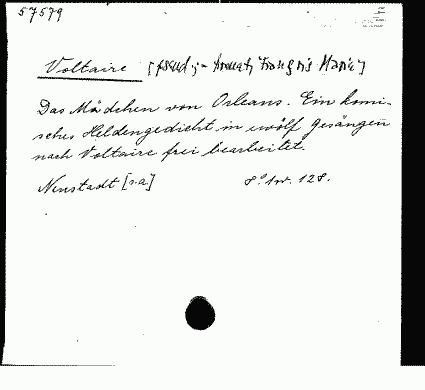 57579
Voltaire [pseud. - Arouet, François Marie]
Das Mädchen von Orleans. Ein komi-
sches Heldengedicht in zwölf Gesängen
nach Voltaire frei bearbeitet.
Neustadt [s.a.] 8° 128.